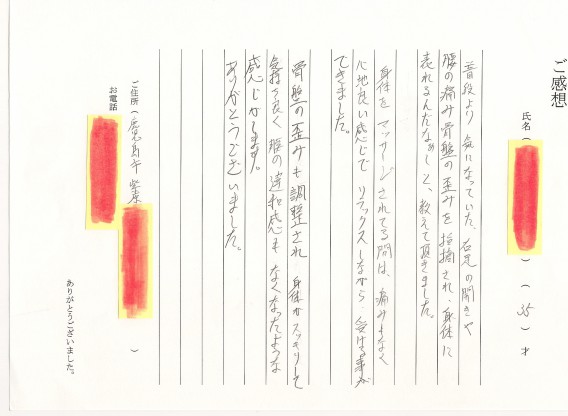 ご感想
氏名(　)(35)才
普段より気になっていた、右足の開きや
腰の痛み骨盤の歪みを指摘され、身体に
表れるんだなぁと、教えて頂きました。
身体をマッサージされてる間は、痛みもなく
心地良い感じでリラックスしながら受ける事が
できました。
骨盤の歪みも調整され身体がスッキリして
気持ち良く腰の違和感もなくなったような
感じがします。
ありがとうございました。
ご住所(鹿島市　)
お電話
ありがとうございました。